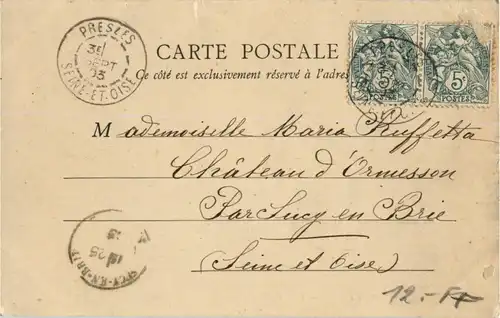 PRESLES
3E
SEPT
03
SEINE-ET-OISE
CARTE POSTALE
Ce côté est exclusivement réservé à l'adres
5c 5c
POSTES
Mademoiselle Maria Ruffetta
Château d'Ormesson
Par Sucy en Brie
(Seine et Oise)
CY-EN-BRIE
12.- FF